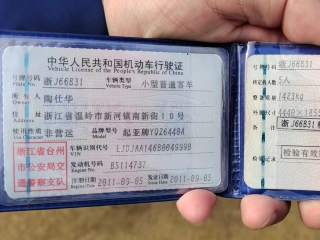 中华人民共和国机动车行驶证
Vehicle License of the People's Republic of China
号牌号码 浙J66B31 车辆类型 小型普通客车
Plate No. Vehicle Type
所有人 陶仕华
住址 浙江省温岭市新河镇南新街10号
使用性质 非营运 品牌型号 起亚牌YQZ6440A
浙江省台州市公安局交通警察支队
车辆识别代号 LJDJAA146B0049990
VIN
发动机号码 B5114737
Engine No.
注册日期 2011-09-05 发证日期 2011-09-05
Register Date Issue Date
号牌号码 浙J66B31
核定载人数 5人
1423kg
浙J66B31
检验有效